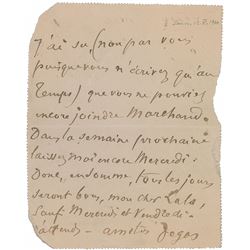 J'ai su, (non par vous
puisque vous n'écrivez qu'au
Temps) que vous ne pouviez
encore joindre Marchand.
Dans la semaine prochaine
laissez moi encore Mercredi.
Donc, en somme, tous les jours
seront bons, mon cher Lala,
sauf Mercredi et Vendredi.
J'attends - amitiés Degas